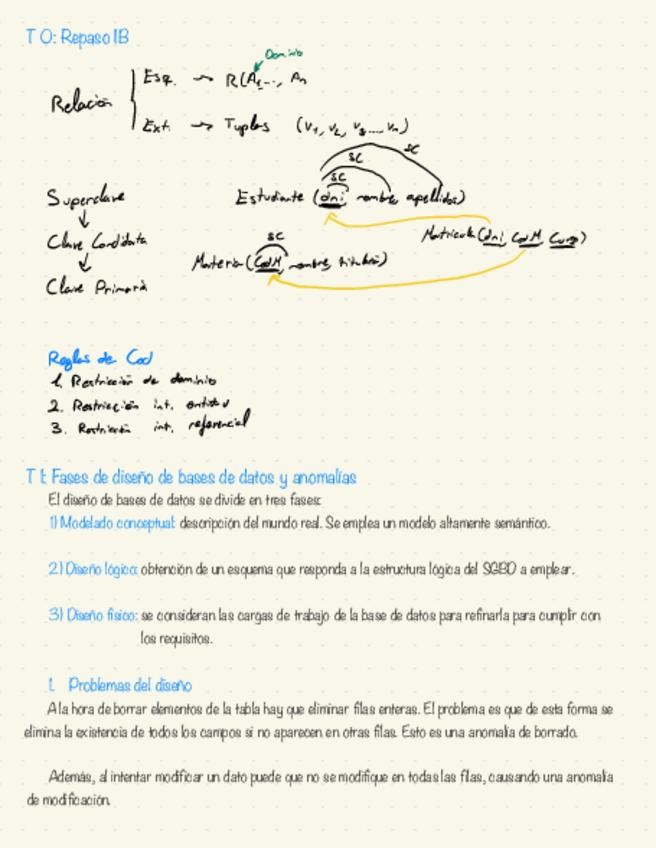 T 0: Repaso IB
Dominio
Relación
Esq. → R(A1..., An
Ext. → Tuplas (v1, v2, v3..., vn)
SC
SC
SC
Superclave
Estudiante (dni, nombre, apellidos)
Clave Candidata
Matricula (dni, CodM, Curso)
SC
Materia (CodM, nombre, titulas)
Clave Primaria
Reglas de Cod
1. Restricción de dominio
2. Restricción int. entidad
3. Restricción int. referencial
T 1: Fases de diseño de bases de datos y anomalías
El diseño de bases de datos se divide en tres fases:
1) Modelado conceptual: descripción del mundo real. Se emplea un modelo altamente semántico.
2) Diseño lógico: obtención de un esquema que responda a la estructura lógica del SGBD a emplear.
3) Diseño físico: se consideran las cargas de trabajo de la base de datos para refinarla para cumplir con
los requisitos.
1. Problemas del diseño
A la hora de borrar elementos de la tabla hay que eliminar filas enteras. El problema es que de esta forma se
elimina la existencia de todos los campos si no aparecen en otras filas. Esto es una anomalía de borrado.
Además, al intentar modificar un dato puede que no se modifique en todas las filas, causando una anomalía
de modificación.